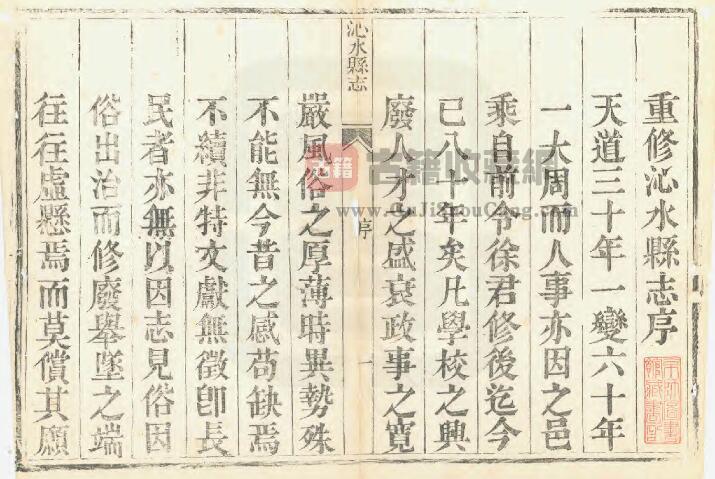 重修沁水縣志序
天道三十年一變六十年
一大周而人事亦因之邑
乘自前令徐君修後迄今
已八十年矣凡學校之興
廢人才之盛衰政事之寬
沁水縣志
序
一
嚴風俗之厚薄時異勢殊
不能無今昔之感苟缺焉
不續非特文獻無徵卽長
民者亦無以因志見俗因
俗出治而修廢舉墜之端
往往虛懸焉而莫償其願
古籍
古籍收藏網
www.GuJiShouCang.com